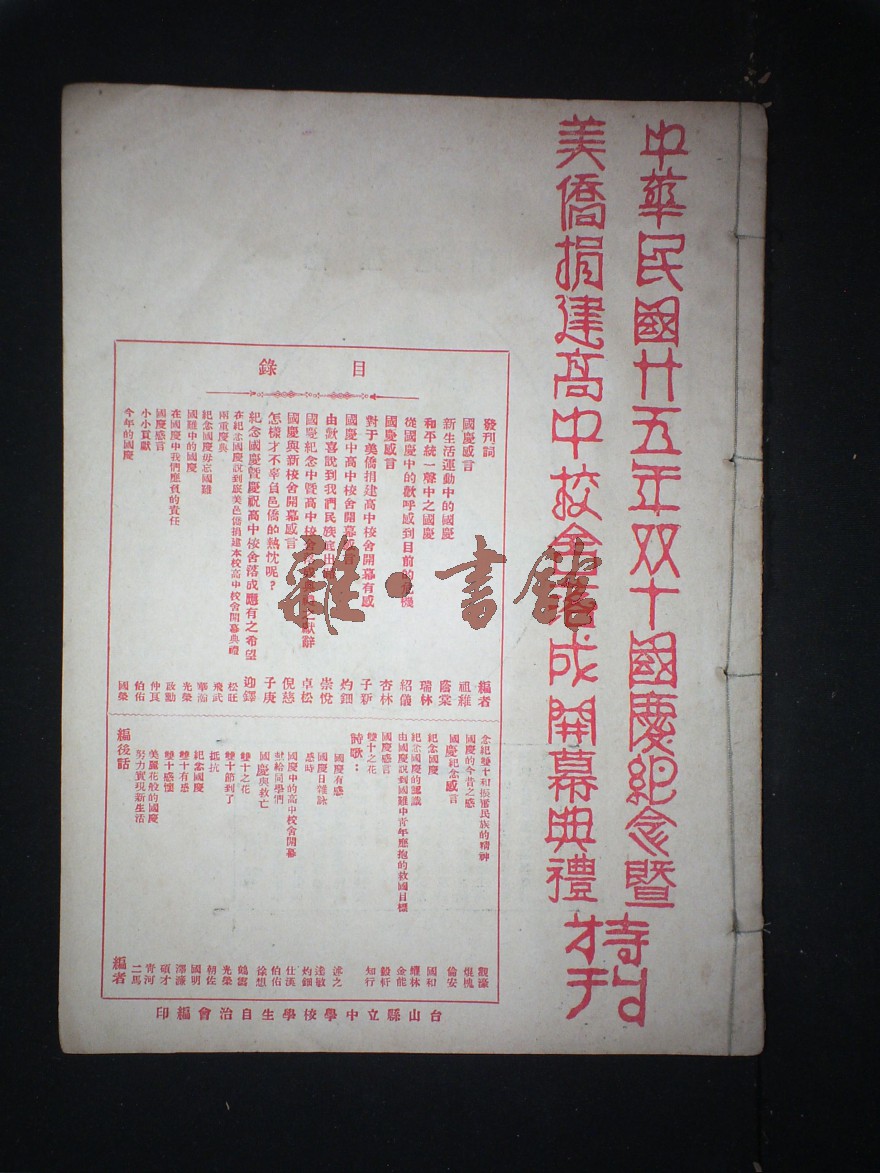 中華民國廿五年双十國慶紀念暨
美僑捐建高中校舍落成開幕典禮
特刊
目錄
發刊詞 編者
國慶感言 祖維
新生活運動中的國慶 蔭棠
和平統一聲中之國慶 瑞林
從國慶中的歡呼感到目前的危機 紹儀
國慶感言 杏林
對于美僑捐建高中校舍開幕有感 子新
國慶中高中校舍開幕感言 灼鈿
由歡喜說到我們民族底出 崇悅
國慶紀念中暨高中校舍 之獻辭 卓松
國慶與新校舍開幕感言 倪慈
怎樣才不辜負邑僑的熱忱呢? 子庚
紀念國慶暨慶祝高中校舍落成應有之希望 迎鐸
在紀念國慶說到旅美邑僑捐建本校高中校舍開幕典禮 松旺
兩重慶典 飛武
紀念國慶毋忘國難 華瀚
國難中的國慶 光榮
在國慶中我們應負的責任 啟勳
國慶感言 仲良
小小貢獻 伯佑
今年的國慶 國榮
念紀雙十和振奮民族的精神 觀濂
國慶的今昔之感 焜槐
國慶紀念感言 倫安
紀念國慶 國和
紀念國慶的認識 維林
由國慶說到國難中青年應抱的救國目標 金能
國慶感言 毅忻
雙十之花 知行
詩歌:
國慶有感 漆之
國慶日雜詠 達敏
感時 灼鈿
國慶中的高中校舍開幕 仕漢
獻給同學們 伯佑
國慶與救亡 徐想
雙十之花 鶴雲
雙十節到了 光榮
抵抗 朝佐
紀念國慶 國明
雙十有感 澤濂
雙十感懷 碩才
美麗花般的國慶 青河
努力實現新生活 二馬
編後話 編者
台山縣立中學校學生自治會編印
雜·書館